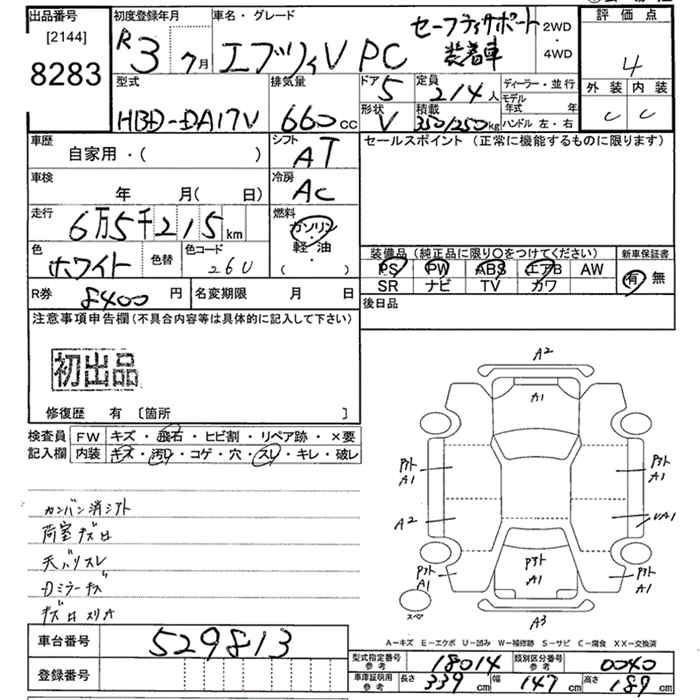 出品番号
[2144]
8283
初度登録年月
R3 7月
車名・グレード
エブリィV PC
セーフティサポート
装着車
2WD
・
4WD
評価点
4
外装 内装
C C
型式
HBD-DA17V
排気量
660 CC
ドア
5
形状
V
定員
2/4人
積載
350/250kg
ディーラー・並行
モデル年式 年
ハンドル 左・右
車歴
自家用・( )
シフト
AT
車検
年 月(日)
冷房
AC
走行
6万5千215km
燃料
ガソリン
・
軽油
・
( )
色
ホワイト
色替
色コード
26U
R券 8400円
名変期限 月 日
セールスポイント (正常に機能するものに限ります)
装備品 (純正品に限り〇をつけてください)
PS PW ABS エアB AW
SR ナビ TV カワ
新車保証書
有 無
後日品
注意事項申告欄(不具合内容等は具体的に記入して下さい)
初出品
修復歴 有 〔箇所 〕
検査員記入欄
FW キズ・飛石・ヒビ割・リペア跡・×要
内装 キズ・汚レ・コゲ・穴・スレ・キレ・破レ
カンバン消シアト
荷室キズロ
天バリスレ
Dミラーキズ
A2
A1
Pアト
A1
Pアト
A1
A2
UA1
Pアト
A1
Pアト
A1
Pアト
A1
スペア
A3
A-キズ E-エクボ U-凹み W-補修跡 S-サビ C-腐食 XX-交換済
車台番号
529813
登録番号
型式指定番号
参考
18014
類別区分番号
参考
0040
車庫証明用
参考
長さ 339cm
幅 147cm
高さ 189cm